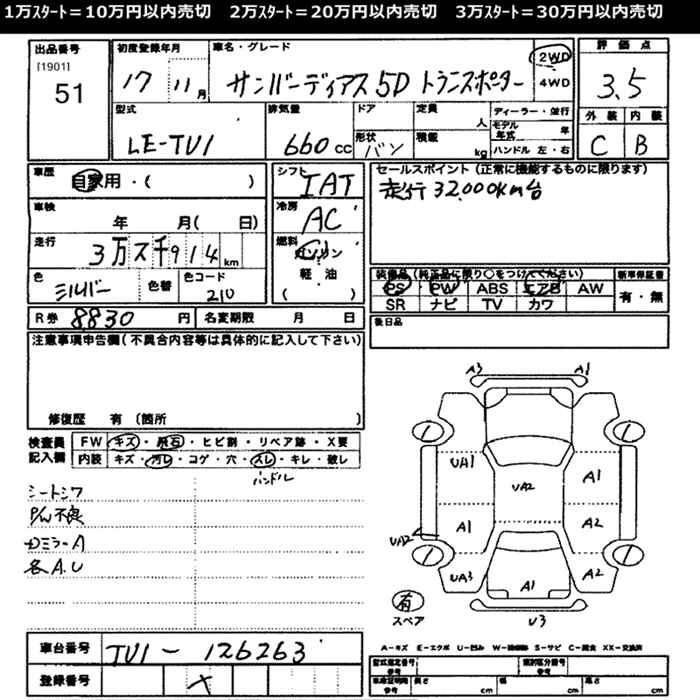 1万ｽﾀｰﾄ＝10万円以内売切　2万ｽﾀｰﾄ＝20万円以内売切　3万ｽﾀｰﾄ＝30万円以内売切
出品番号
[1901]
51
初度登録年月
17 11月
車名・グレード
サンバーディアス 5D トランスポーター
2WD
4WD
評価点
3.5
型式
LE-TV1
排気量
660 cc
ドア
形状
バン
定員
人
積載
kg
ディーラー・並行
モデル年式 年
ハンドル 左・右
外装 内装
C B
車歴
自家用・( )
シフト
IAT
セールスポイント (正常に機能するものに限ります)
走行32,000km台
車検
年 月( 日)
冷房
AC
走行
3万2千914km
燃料
ガソリン
軽油
( )
色
シルバー
色替
色コード
210
装備品 (純正品に限り○をつけてください)
PS PW ABS エアB AW
SR ナビ TV カワ
新車保証書
有・無
R券 8830円
名変期限 月 日
後日品
注意事項申告欄(不具合内容等は具体的に記入して下さい)
修復歴 有(箇所 )
検査員記入欄
FW キズ・飛石・ヒビ割・リペア跡・X要
内装 キズ・汚レ・コゲ・穴・スレ・キレ・破レ
ハンドル
シートシワ
P/W不良
Dミラー A
各A.U
A3 A1
UA1 A1
UA2
A1 A2
UA2
UA3 A2
A1
U3
有
スペア
A-キズ E-エクボ U-凹み W-補修跡 S-サビ C-腐食 XX-交換済
車台番号
TV1-126263
登録番号
型式指定番号
参考
類別区分番号
参考
車庫証明用
参考
長さ cm 幅 cm 高さ cm